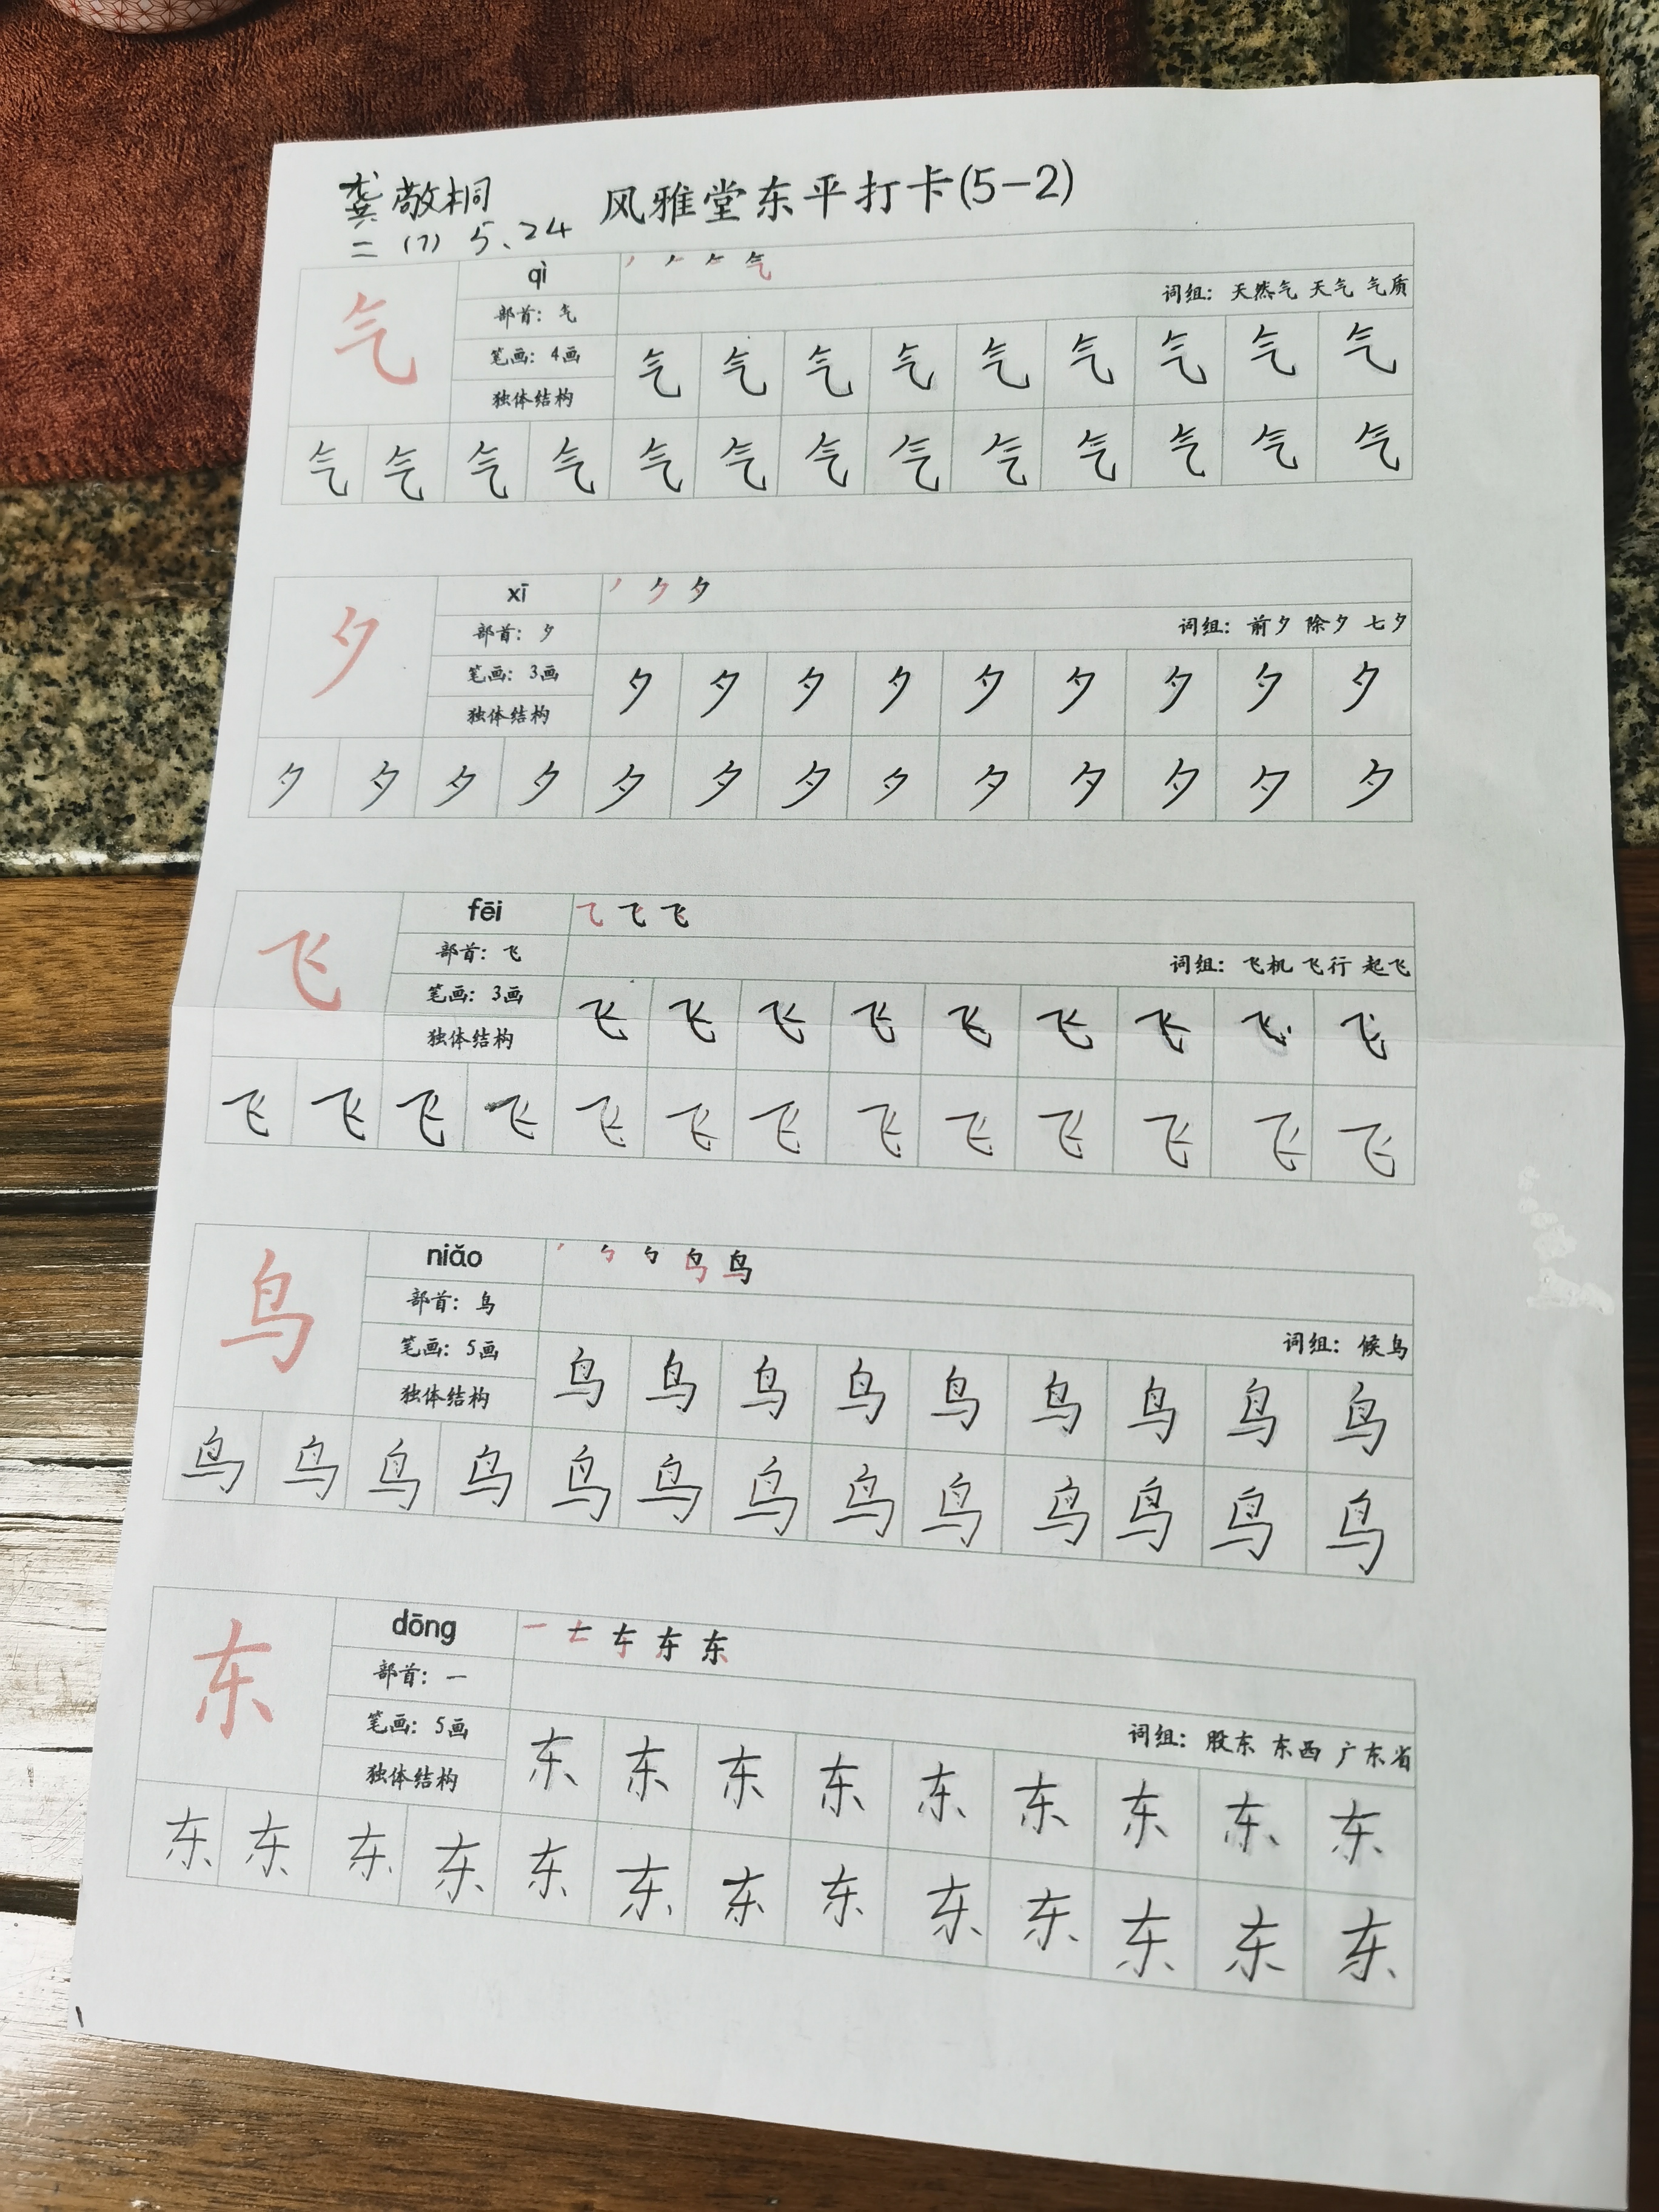 龚敞桐 风雅堂东平打卡(5-2)
二(7) 5.24
气 qì
部首：气
词组：天然气 天气 气质
笔画：4画
独体结构
气 气 气 气 气 气 气 气 气
气 气 气 气 气 气 气 气 气 气 气 气 气
夕 xī
部首：夕
词组：前夕 除夕 七夕
笔画：3画
独体结构
夕 夕 夕 夕 夕 夕 夕 夕 夕
夕 夕 夕 夕 夕 夕 夕 夕 夕 夕 夕 夕 夕
飞 fēi
部首：飞
词组：飞机 飞行 起飞
笔画：3画
独体结构
飞 飞 飞 飞 飞 飞 飞 飞 飞
飞 飞 飞 飞 飞 飞 飞 飞 飞 飞 飞 飞 飞
鸟 niǎo
部首：鸟
词组：候鸟
笔画：5画
独体结构
鸟 鸟 鸟 鸟 鸟 鸟 鸟 鸟 鸟
鸟 鸟 鸟 鸟 鸟 鸟 鸟 鸟 鸟 鸟 鸟 鸟 鸟
东 dōng
部首：一
词组：股东 东西 广东省
笔画：5画
独体结构
东 东 东 东 东 东 东 东 东
东 东 东 东 东 东 东 东 东 东 东 东 东